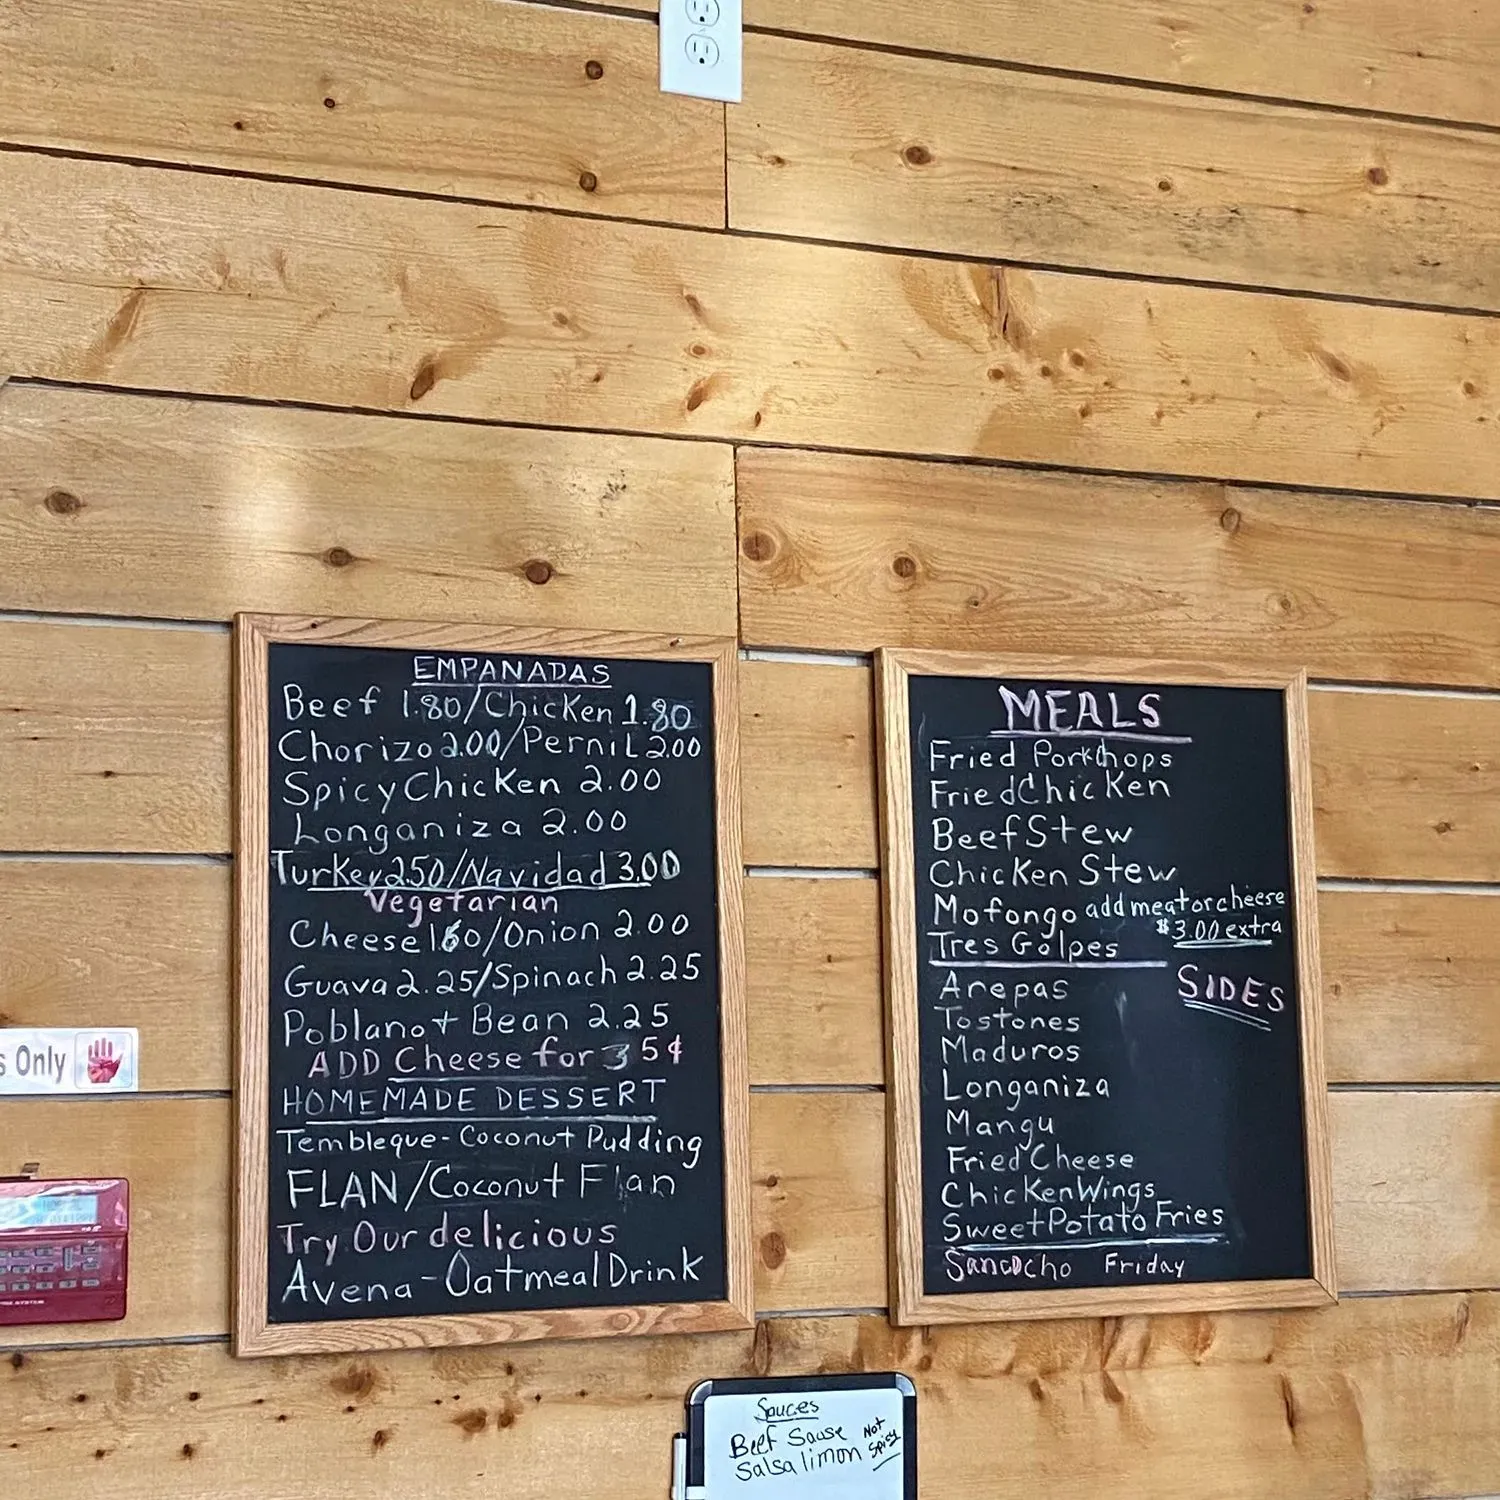 EMPANADAS
Beef 1.80/Chicken 1.80
Chorizo 2.00/Pernil 2.00
Spicy Chicken 2.00
Longaniza 2.00
Turkey 2.50/Navidad 3.00
Vegetarian
Cheese 1.60/Onion 2.00
Guava 2.25/Spinach 2.25
Poblano + Bean 2.25
ADD Cheese for 35¢
HOMEMADE DESSERT
Tembleque - Coconut Pudding
FLAN/Coconut Flan
Try Our delicious
Avena - Oatmeal Drink
MEALS
Fried PorkChops
Fried Chicken
Beef Stew
Chicken Stew
Mofongo add meat or cheese
$3.00 extra
Tres Golpes
SIDES
Arepas
Tostones
Maduros
Longaniza
Mangu
Fried Cheese
Chicken Wings
Sweet Potato Fries
Sancocho Friday
s Only
Sauces
Beef Sause
Salsa limon
Not
Spicy